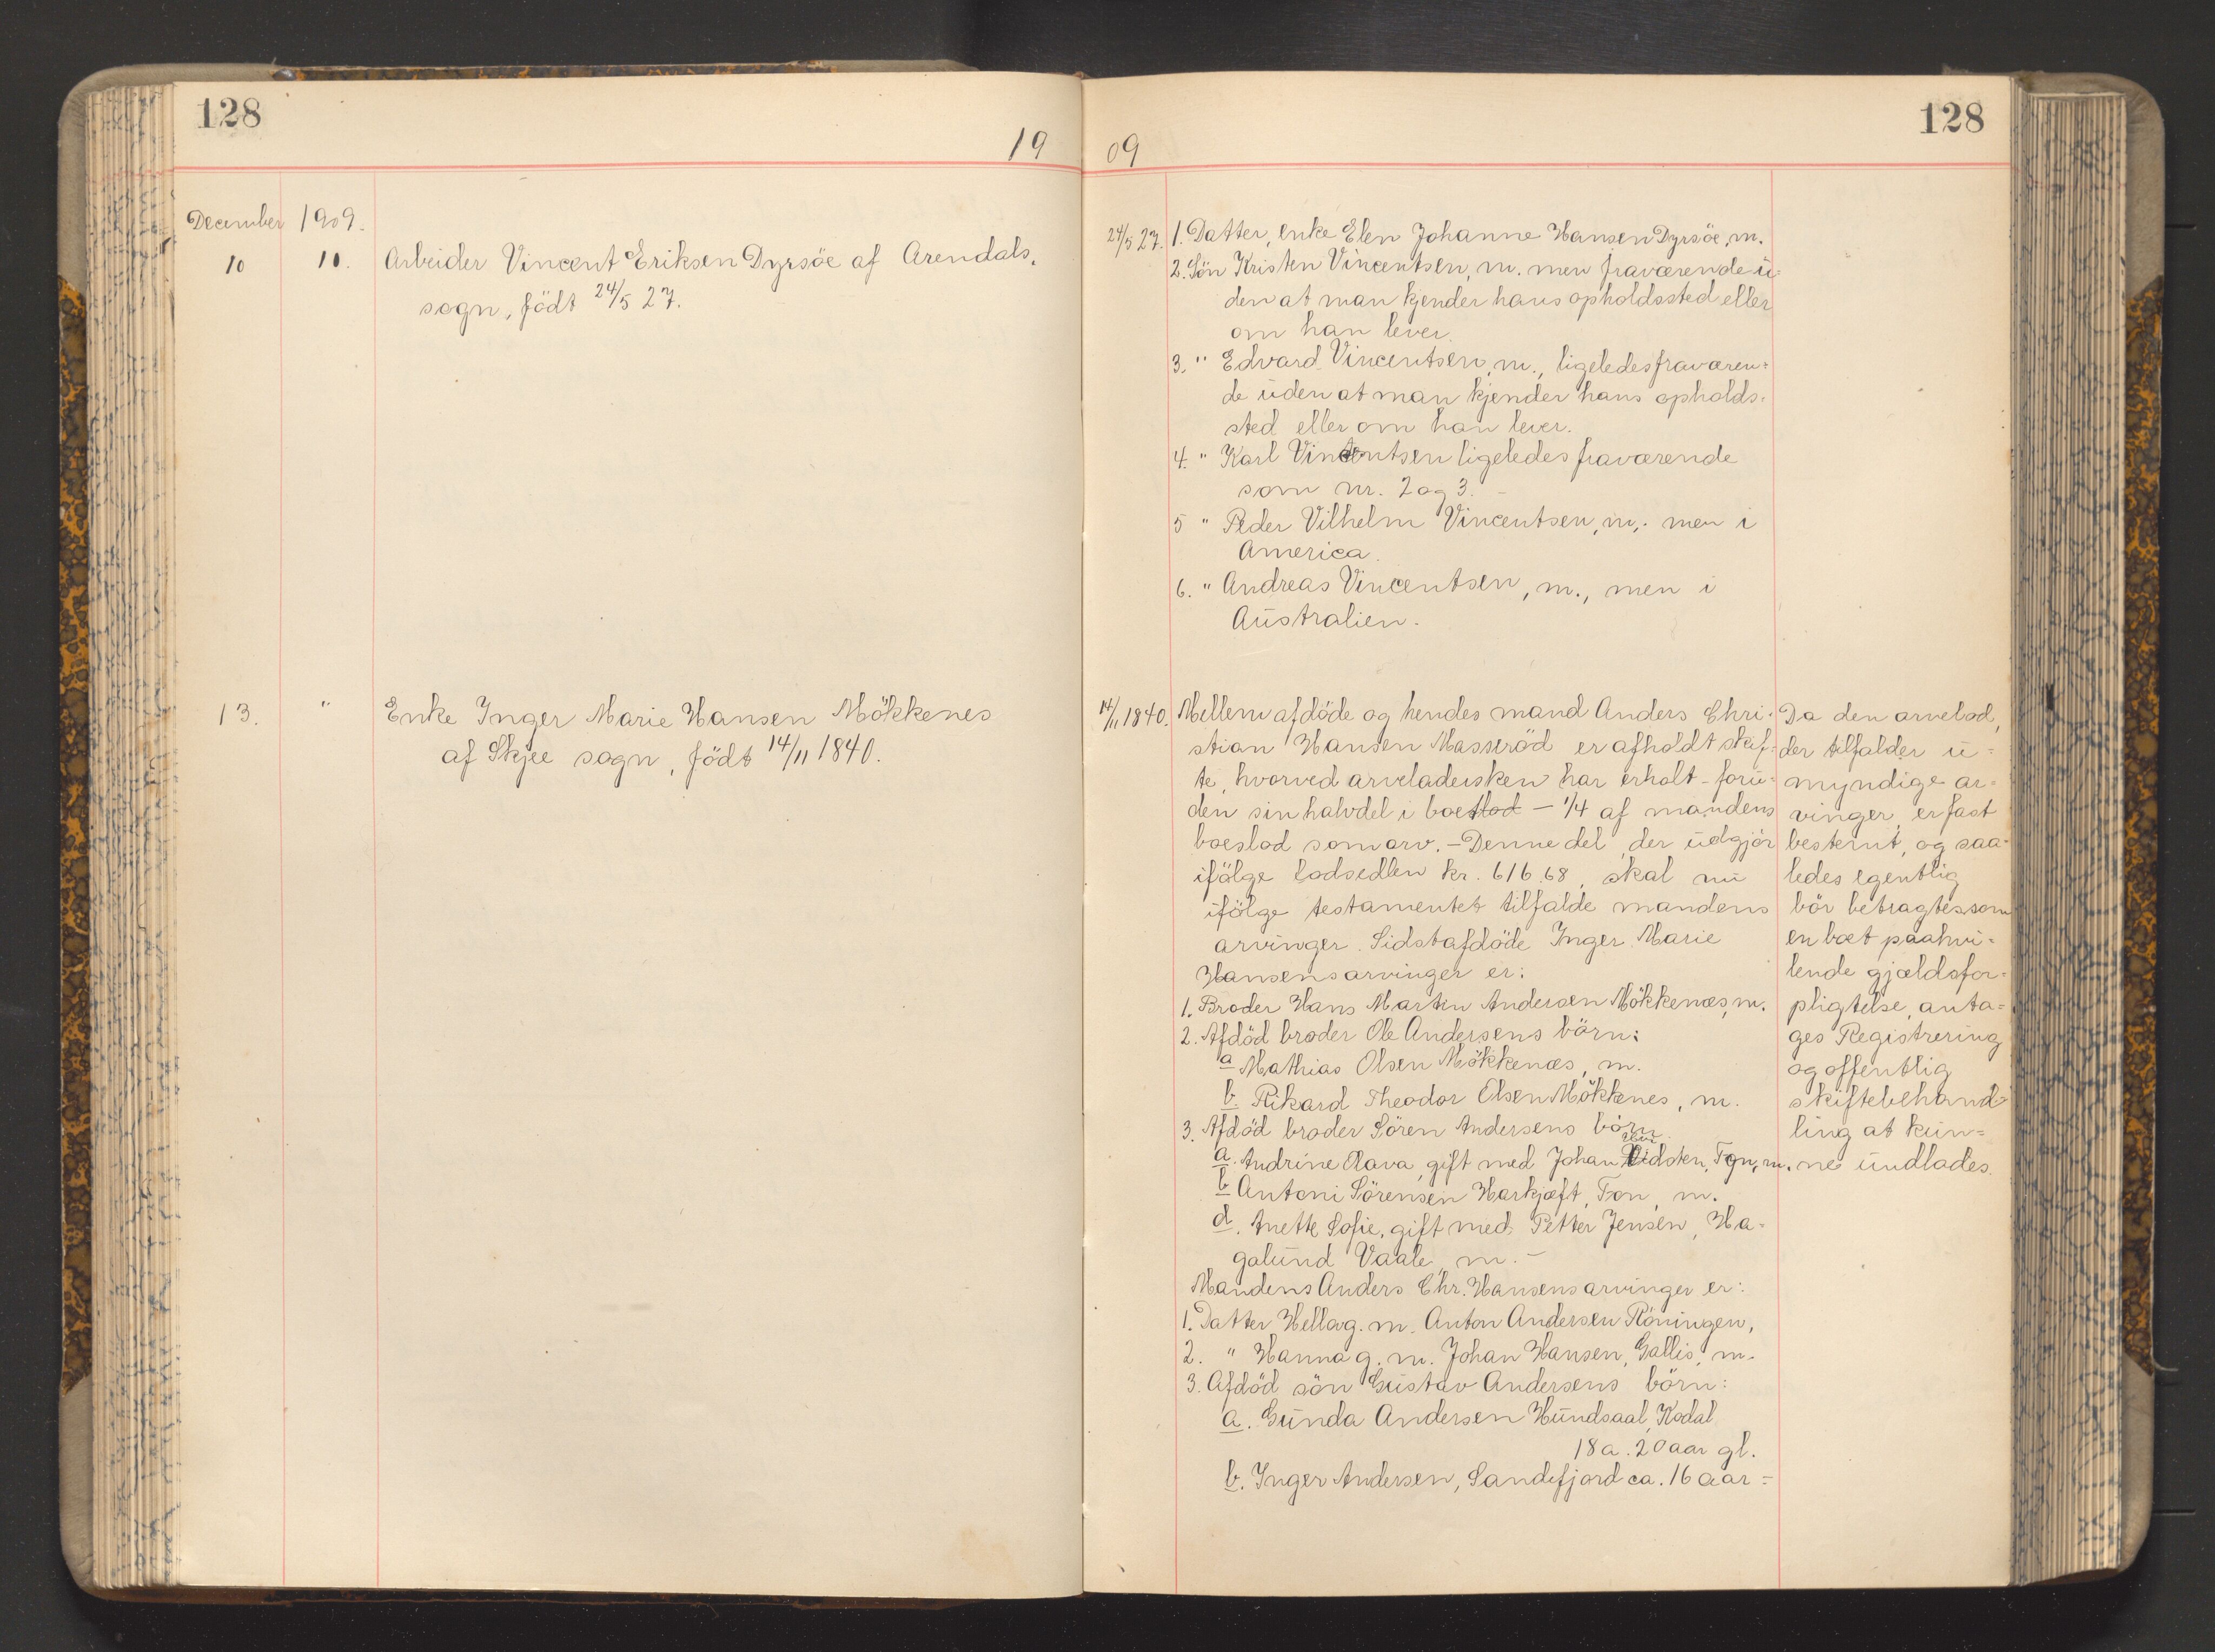 128
19
December 1909.
10 10. Arbeider Vincent Eriksen Dyrsöe af Arendals,
sogn, födt 24/5 27.
13. " Enke Inger Marie Hansen Mökkenes
af Skjee sogn, födt 14/11 1840.
128
09
24/5 27. 1. Datter, enke Elen Johanne Hansen Dyrsöe, m.
2. Sön Kristen Vincentsen, m. men fraværende u-
den at man kjender hans opholdssted eller
om han lever.
3. " Edvard Vincentsen, m., ligeledes fraværen-
de uden at man kjender hans opholds-
sted eller om han lever.
4. " Karl Vincentsen ligeledes fraværende
som nr. 2 og 3. -
5 " Peder Vilhelm Vincentsen, m,. men i
America.
6. " Andreas Vincentsen, m., men i
Australien.
14/11 1840. Mellem afdöde og hendes mand Anders Chri-
stian Hansen Masseröd er afholdt skif-
te, hvorved arveladersken har erholt - foru-
den sin halvdel i boetlod - 1/4 af mandens
boeslod som arv. - Denne del, der udgjör
ifölge Lodsedlen kr. 616.68, skal nu
ifölge testamentet tilfalde mandens
arvinger. Sidstafdöde Inger Marie
Hansens arvinger er:
1. Broder Hans Martin Andersen Mökkenæs, m.
2. Afdöd broder Ole Andersens börn:
a Mathias Olsen Mökkenæs, m.
b. Rikard Theodor Olsen Mökkenes, m.
3. Afdöd broder Sören Andersens börn.
a. Andrine Olava, gift med Johan Vidsten, Fon, m.
b Antoni Sörensen Harkjæft, Fon, m.
d. Anette Sofie, gift med Petter Jensen, Ha-
galund Vaale, m. -
Mandens Anders Chr. Hansens arvinger er:
1. Datter Hella g. m. Anton Andersen Röningen,
2. " Hanna g. m. Johan Hansen, Gallis, m.
3. Afdöd sön Gustav Andersens börn:
a. Gunda Andersen Hundsaal, Kodal
18 a. 20 aar gl.
b. Inger Andersen, Sandefjord ca. 16 aar -
Da den arvelod,
der tilfalder u-
myndige ar-
vinger, er fast
bestemt, og saa-
ledes egentlig
bör betragtes som
en boet paahvi-
lende gjældsfor-
pligtelse, anta-
ges Registrering
og offentlig
skiftebehand-
ling at kun-
ne undlades.